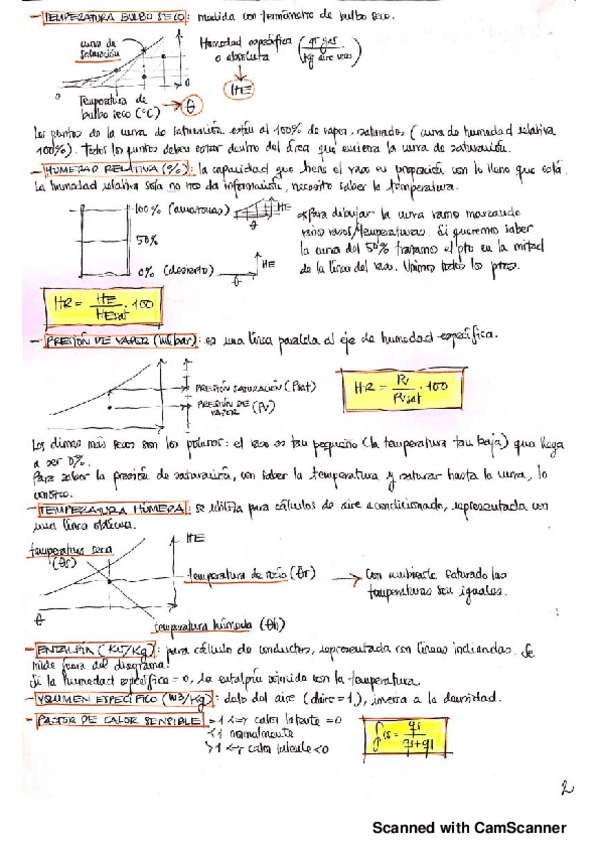 - TEMPERATURA BULBO SECO: medida con termómetro de bulbo seco.
curva de saturación
Humedad específica o absoluta (gr gas / kg aire seco)
HE
0
0
Temperatura de bulbo seco (°C) → θ
Los puntos de la curva de saturación están al 100% de vapor, saturados (curva de humedad relativa
100%). Todos los puntos deben estar dentro del área que encierra la curva de saturación.
- HUMEDAD RELATIVA (%): la capacidad que tiene el vaso en proporción con lo lleno que está.
La humedad relativa sola no nos da información, necesito saber la temperatura.
100% (amazonas)
50%
0% (desierto)
HE
HE
θ
Para dibujar la curva vamos marcando
varios vasos/temperaturas. Si queremos saber
la curva del 50% trazamos el pto en la mitad
de la línea del vaso. Unimos todos los ptos.
HR = HE / HEsat · 100
- PRESIÓN DE VAPOR (milibar): es una línea paralela al eje de humedad específica.
PRESIÓN SATURACIÓN (Psat)
PRESIÓN DE VAPOR (Pv)
HR = Pv / Pvsat · 100
Los climas más secos son los polares: el vaso es tan pequeño (la temperatura tan baja) que llega
a ser 0%.
Para saber la presión de saturación, con saber la temperatura y saturar hasta la curva, lo
- TEMPERATURA HÚMEDA: se utiliza para cálculos de aire acondicionado, representada con
una línea oblicua.
temperatura seca (θs)
HE
temperatura de rocío (θr)
→ Con ambiente saturado las
temperaturas son iguales.
θ
temperatura húmeda (θh)
- ENTALPÍA (KJ/Kg): para cálculo de conductos, representada con líneas inclinadas. Se
mide fuera del diagrama.
Si la humedad específica = 0, la entalpía coincide con la temperatura
- VOLUMEN ESPECÍFICO (m3/Kg): dato del aire (daire = 1), inversa a la densidad.
- FACTOR DE CALOR SENSIBLE = 1 ↔ calor latente = 0
< 1 normalmente
> 1 ↔ calor latente < 0
fcs = qs / qs+ql
2
Scanned with CamScanner